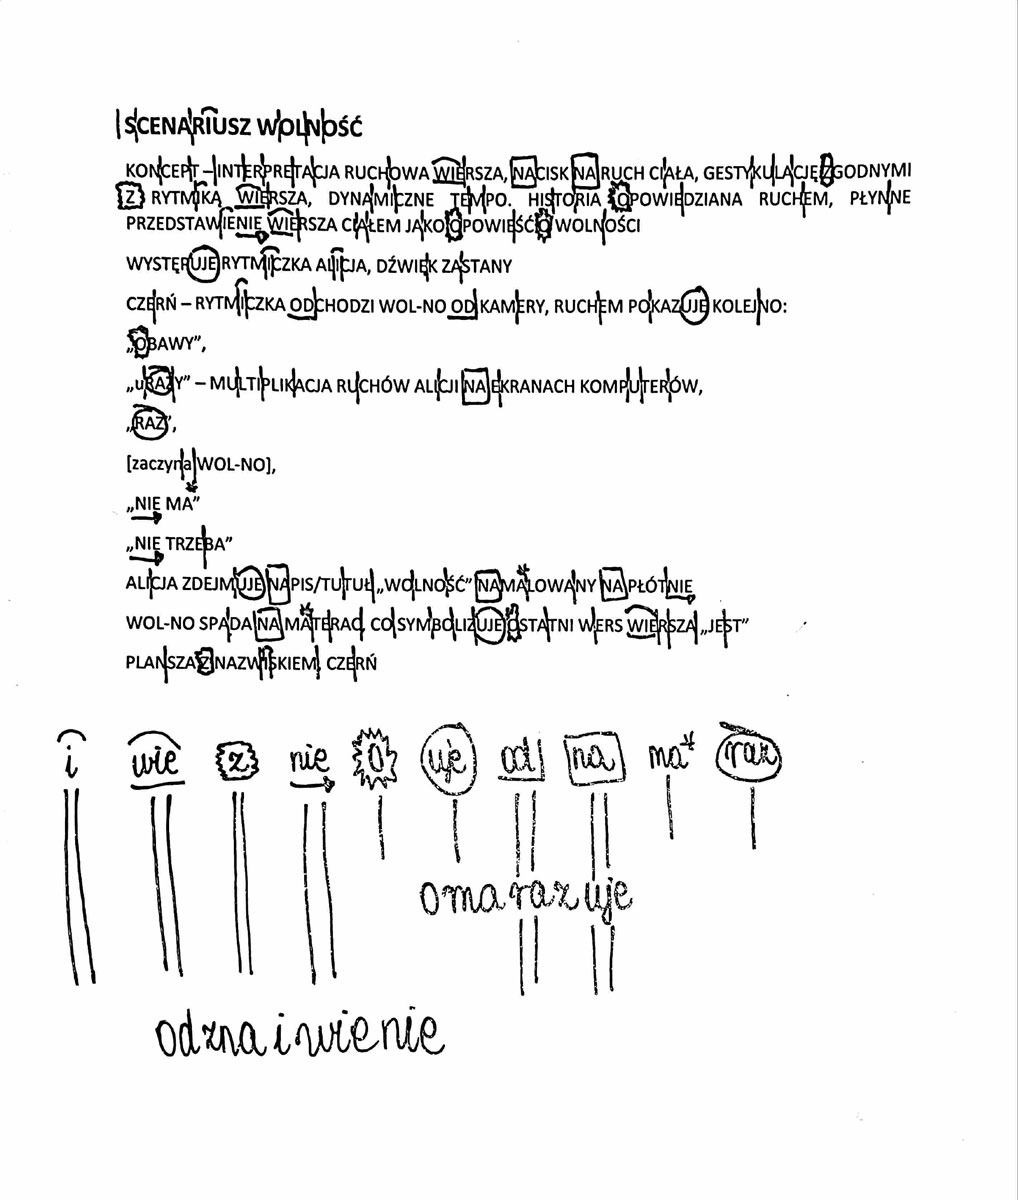 SCENARIUSZ WOLNOŚĆ
KONCEPT – INTERPRETACJA RUCHOWA WIERSZA, NACISK NA RUCH CIAŁA, GESTYKULACJĘ ZGODNYMI
Z RYTMIKĄ WIERSZA, DYNAMICZNE TEMPO. HISTORIA OPOWIEDZIANA RUCHEM, PŁYNNE
PRZEDSTAWIENIE WIERSZA CIAŁEM JAKO OPOWIEŚĆ O WOLNOŚCI
WYSTĘPUJE RYTMICZKA ALICJA, DŹWIĘK ZASTANY
CZERŃ – RYTMICZKA ODCHODZI WOL-NO OD KAMERY, RUCHEM POKAZUJE KOLEJNO:
„OBAWY”,
„uRAZY” – MULTIPLIKACJA RUCHÓW ALICJI NA EKRANACH KOMPUTERÓW,
„RAZ”,
[zaczyna WOL-NO],
„NIE MA”
„NIE TRZEBA”
ALICJA ZDEJMUJE NAPIS/TUTUŁ „WOLNOŚĆ” NAMALOWANY NA PŁÓTNIE
WOL-NO SPADA NA MATERAC, CO SYMBOLIZUJE OSTATNI WERS WIERSZA „JEST”
PLANSZA Z NAZWISKIEM, CZERŃ
i wie z nie o uje od na ma raz
omarazuje
odznaiwienie